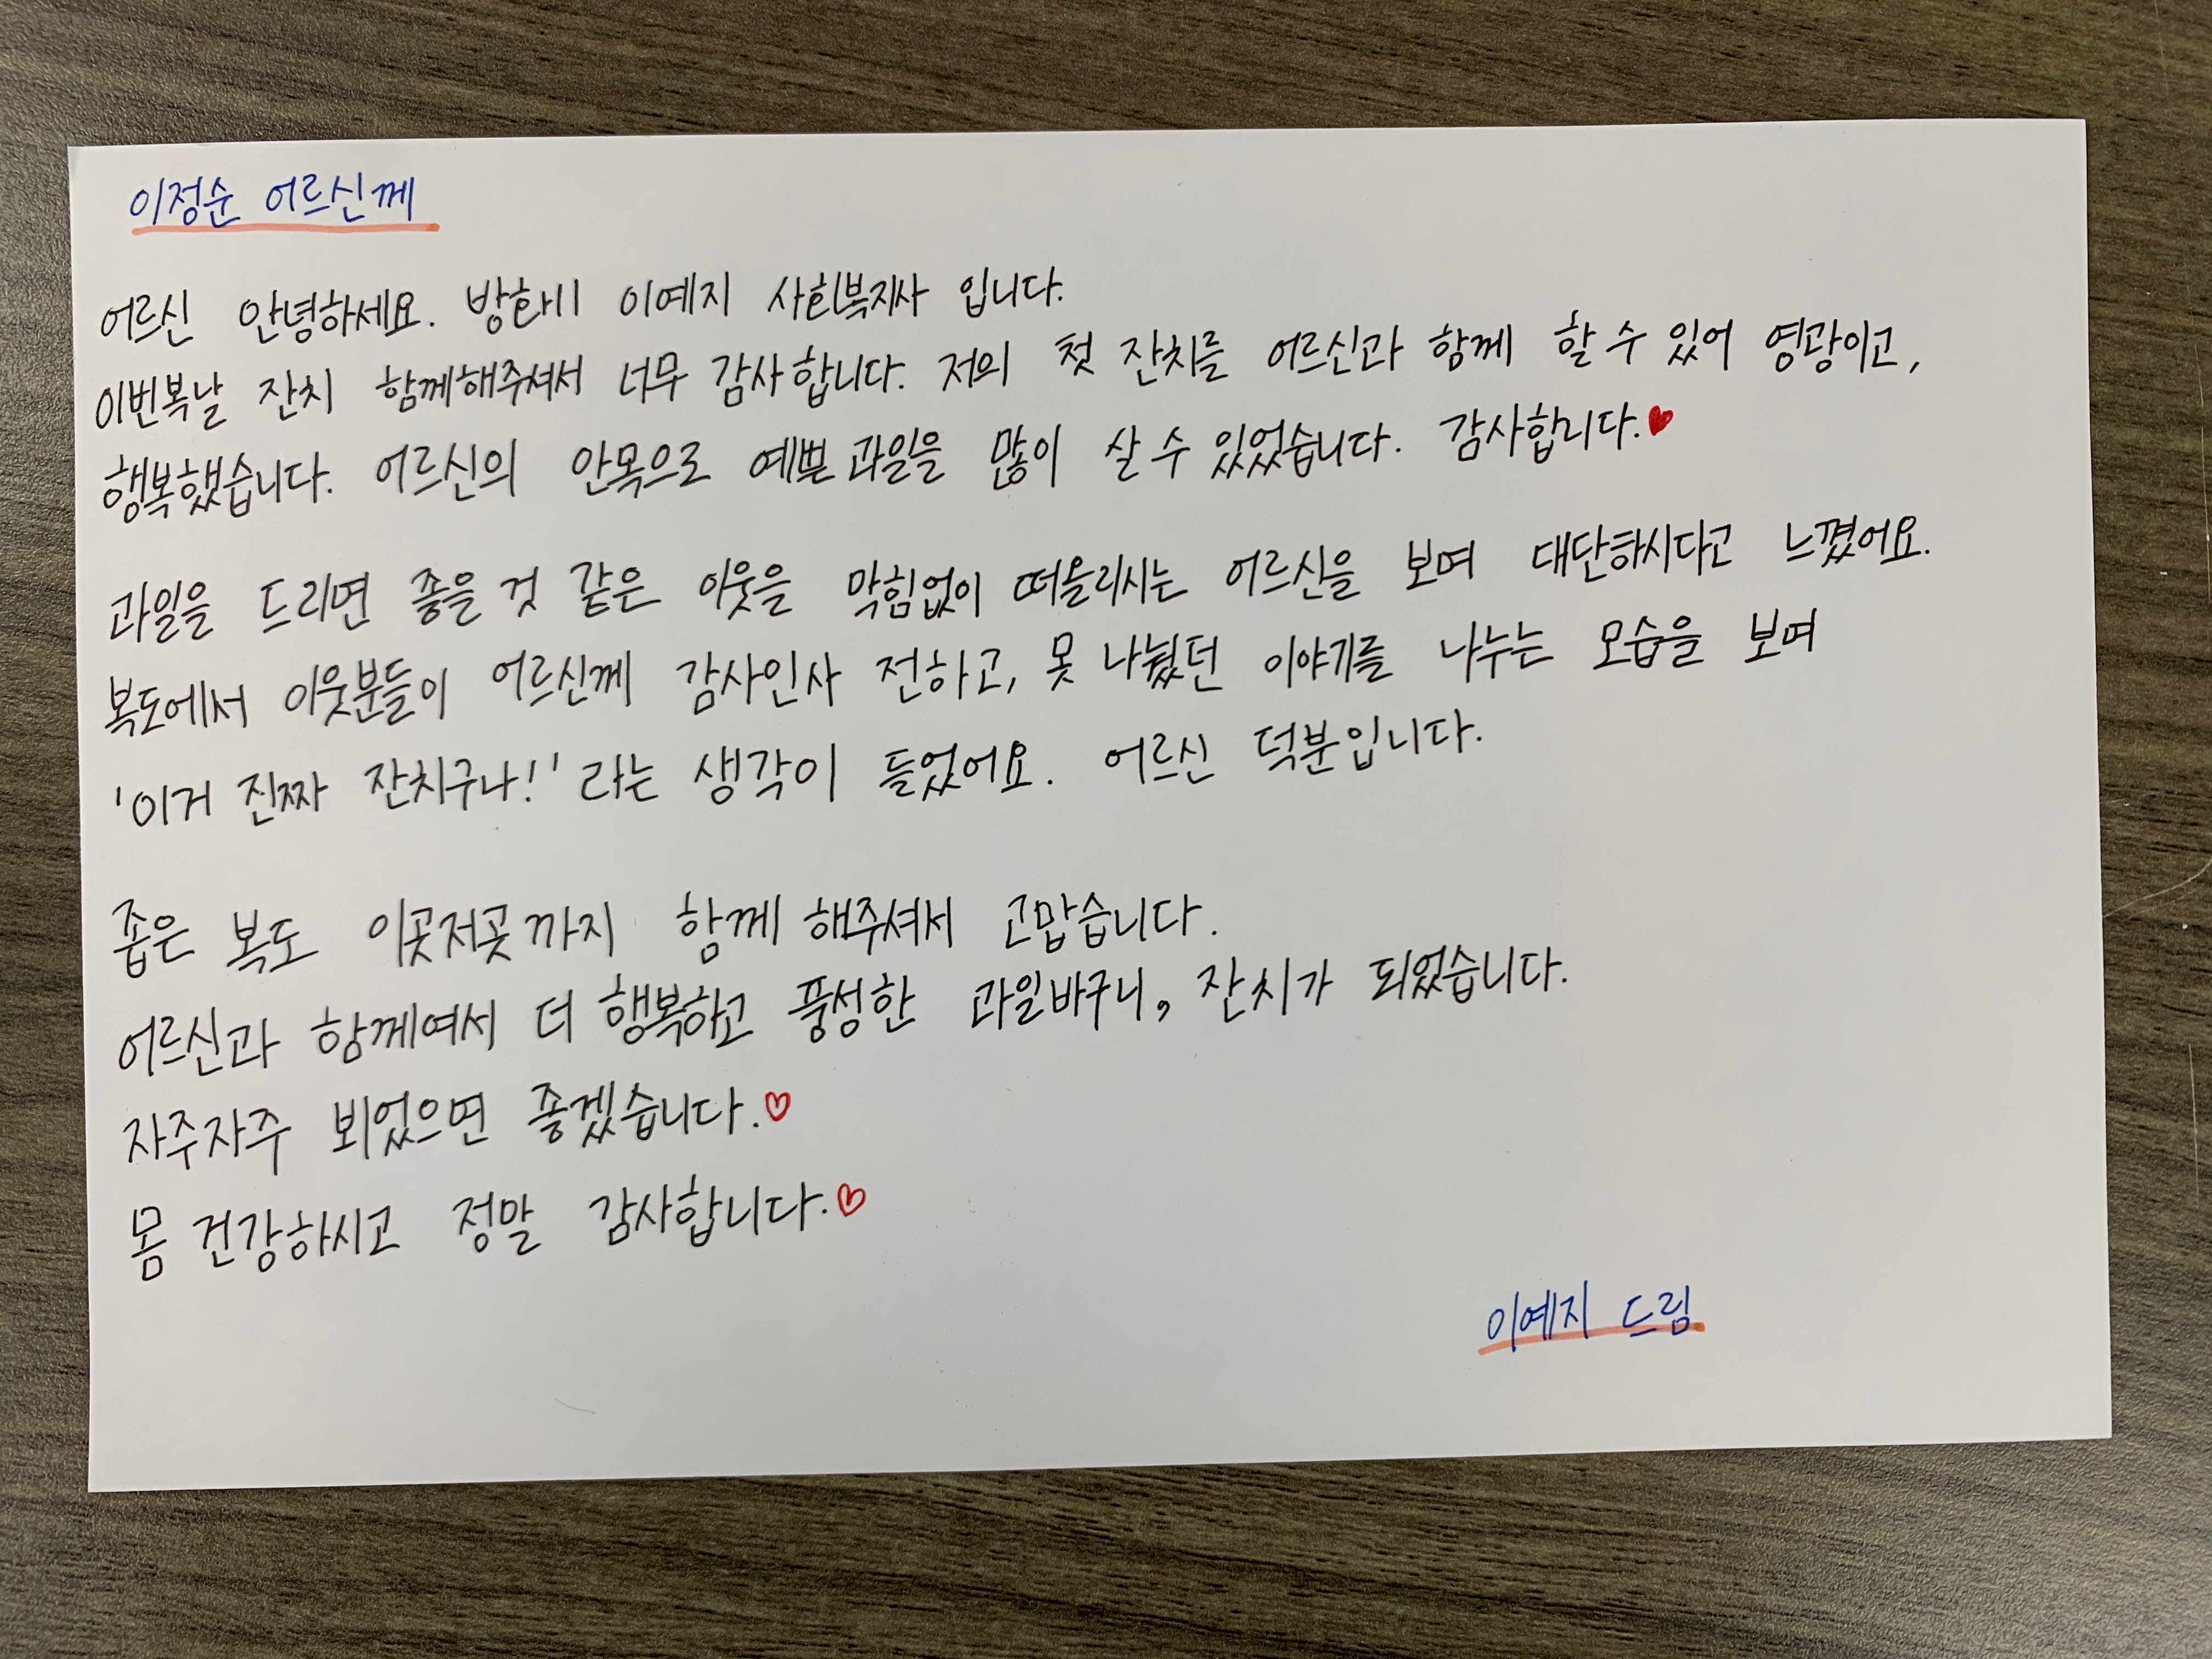 이정순 어르신께
어르신 안녕하세요. 방화11 이예지 사회복지사 입니다.
이번복날 잔치 함께해주셔서 너무 감사합니다. 저의 첫 잔치를 어르신과 함께 할 수 있어 영광이고,
행복했습니다. 어르신의 안목으로 예쁜 과일을 많이 살 수 있었습니다. 감사합니다.♥
과일을 드리면 좋을 것 같은 이웃을 막힘없이 떠올리시는 어르신을 보며 대단하시다고 느꼈어요.
복도에서 이웃분들이 어르신께 감사인사 전하고, 못 나눴던 이야기를 나누는 모습을 보며
'이거 진짜 잔치구나!' 라는 생각이 들었어요. 어르신 덕분입니다.
좁은 복도 이곳저곳까지 함께 해주셔서 고맙습니다.
어르신과 함께여서 더 행복하고 풍성한 과일바구니, 잔치가 되었습니다.
자주자주 뵈었으면 좋겠습니다.♡
몸 건강하시고 정말 감사합니다.♡
이예지 드림